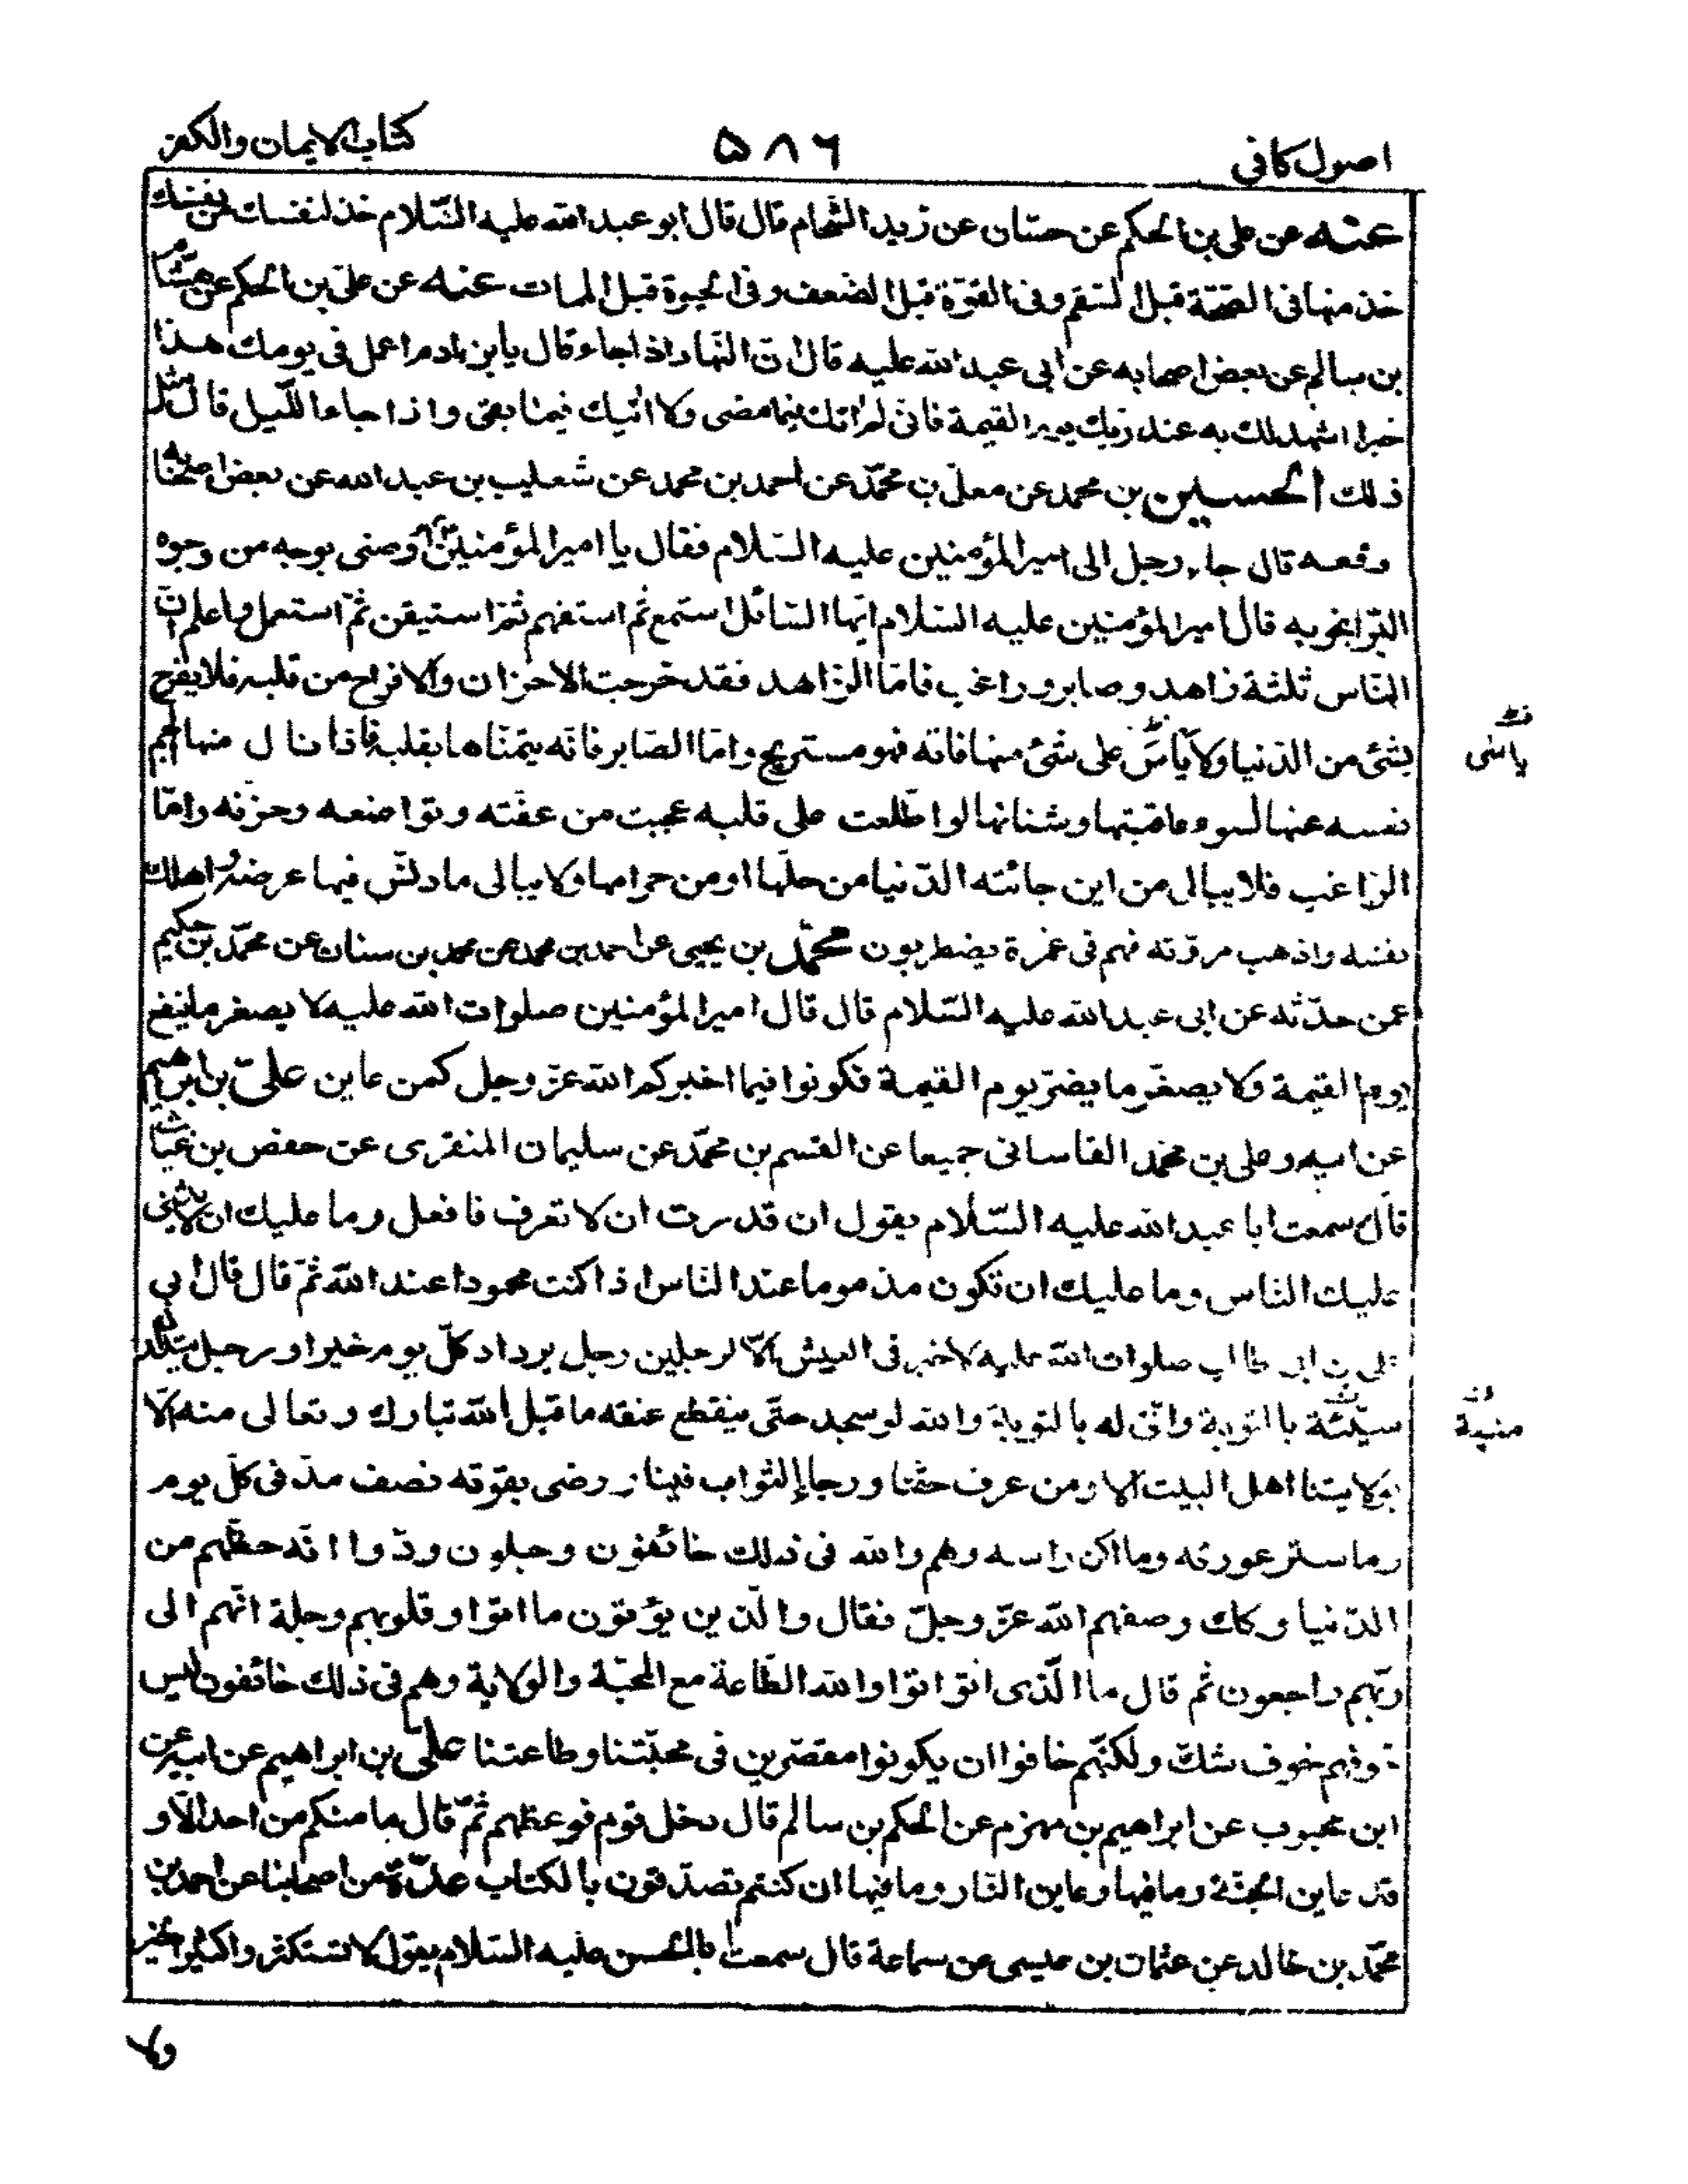 اصول كافى
۵۸۶
كتاب الايمان والكفر
عنه عن على بن الحكم عن حسّان عن زيد الشحام قال قال ابو عبد الله عليه السّلام خذ لنفسك من نفسك
خذ منها فى الصّحّة قبل السقم وفى القوّة قبل الضعف وفى الحيوة قبل الممات عنه عن علىّ بن الحكم عن هشام
بن سالم عن بعض اصحابه عن ابى عبد الله عليه قال انّ النّهار اذا جاء قال يا بن ادم اعمل فى يومك هذا
خيرا اشهد لك به عند ربّك يوم القيمة فانى لم اتك فيما مضى ولا اتيك فيما بقى واذا جاء اللّيل قال مثل
ذلك الحسين بن محمد عن معلّى بن محمّد عن احمد بن محمد عن شعيب بن عبد الله عن بعض اصحابنا
رفعه قال جاء رجل الى امير المؤمنين عليه السّلام فقال يا امير المؤمنين اوصنى بوجه من وجوه
البرّ انجو به قال امير المؤمنين عليه السّلام ايّها السّائل استمع ثم استفهم ثمّ استيقن ثمّ استعمل واعلم انّ
النّاس ثلثة زاهد وصابر وراغب فامّا الزّاهد فقد خرجت الاحزان والافراح من قلبه فلا يفرح
بشئ من الدّنيا ولا يأس على شئ منها فاته فهو مستريح وامّا الصّابر فانّه يتمنّاها بقلبه فاذا نال منها الجم
نفسه عنها لسوء عاقبتها وشنانها لو اطّلعت على قلبه عجبت من عفّته وتواضعه وحزمه وامّا
الرّاغب فلا يبالى من اين جائته الدّنيا من حلّها او من حرامها ولا يبالى ما دنّس فيها عرضه واهلك
نفسه واذهب مروّته فهم فى غمرة يضطربون محمّد بن يحيى عن احمد بن محمد عن محمد بن سنان عن محمّد بن حكيم
عمن حدّثه عن ابى عبد الله عليه السّلام قال قال امير المؤمنين صلوات الله عليه لا يصغر ما ينفع
يوم القيمة ولا يصغّر ما يضرّ يوم القيمة فكونوا فيما اخبركم الله عزّ وجل كمن عاين علىّ بن ابرهيم
عن ابيه وعلى بن محمد القاسانى جميعا عن القسم بن محمّد عن سليمان المنقرى عن حفص بن غياث
قال سمعت ابا عبد الله عليه السّلام يقول ان قدرت ان لا تعرف فافعل وما عليك ان لا يثنى
عليك الناس وما عليك ان تكون مذموما عند النّاس اذا كنت محمودا عند اللّه ثمّ قال قال ابى
على بن ابى طالب صلوات الله عليه لا خير فى العيش الّا لرجلين رجل يزداد كلّ يوم خيرا ورجل يتدارك
سيّئة بالتوبة وانّى له بالتوبة والله لو سجد حتّى ينقطع عنقه ما قبل اللّه تبارك وتعالى منه الّا
بولايتنا اهل البيت الا ومن عرف حقّنا ورجا الثواب فينا ورضى بقوّته نصف مدّ فى كلّ يوم
وما ستر عورته وما اكن راسه وهم والله فى ذلك خائفون وجلون ودّوا انّه حظّهم من
الدّنيا وكك وصفهم اللّه عزّ وجلّ فقال والّذين يؤتون ما اتوا وقلوبهم وجلة انّهم الى
ربّهم راجعون ثم قال ما الّذى اتوا اتوا والله الطّاعة مع المحبّة والولاية وهم فى ذلك خائفون ليس
خوفهم خوف شكّ ولكنّهم خافوا ان يكونوا مقصّرين فى محبّتنا وطاعتنا علىّ بن ابراهيم عن ابيه عن
ابن محبوب عن ابراهيم بن مهزم عن الحكم بن سالم قال دخل قوم فوعظهم ثمّ قال ما منكم من احد الّا و
قد عاين الجنّة وما فيها وعاين النّار وما فيها ان كنتم تصدّقون بالكتاب عدّة من اصحابنا عن احمد بن
محمّد بن خالد عن عثمان بن عيسى عن سماعة قال سمعت ابا الحسن عليه السّلام يقول لا تستكثروا كثير الخير
ولا
ياسى
منيته